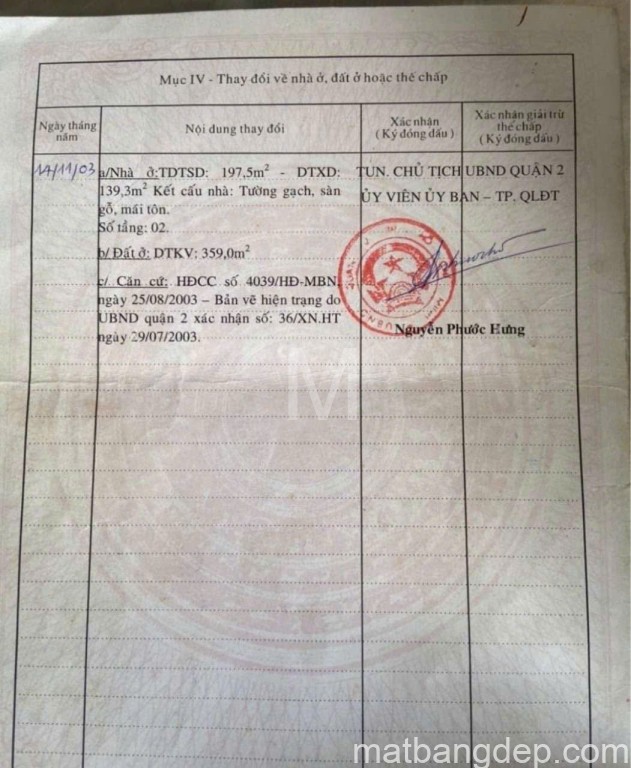 Mục IV - Thay đổi về nhà ở, đất ở hoặc thế chấp
Ngày tháng năm
Nội dung thay đổi
Xác nhận
( Ký đóng dấu )
Xác nhận giải trừ
thế chấp
( Ký đóng dấu )
14/11/03
a/Nhà ở:TDTSD: 197,5m² - DTXD:
139,3m² Kết cấu nhà: Tường gạch, sàn
gỗ, mái tôn.
Số tầng: 02.
b/ Đất ở: DTKV: 359,0m²
c/ Căn cứ: HĐCC số 4039/HĐ-MBN
ngày 25/08/2003 – Bản vẽ hiện trạng do
UBND quận 2 xác nhận số: 36/XN.HT
ngày 29/07/2003.
TUN. CHỦ TỊCH UBND QUẬN 2
ỦY VIÊN ỦY BAN – TP. QLĐT
Nguyễn Phước Hưng
M
matbangdep.com